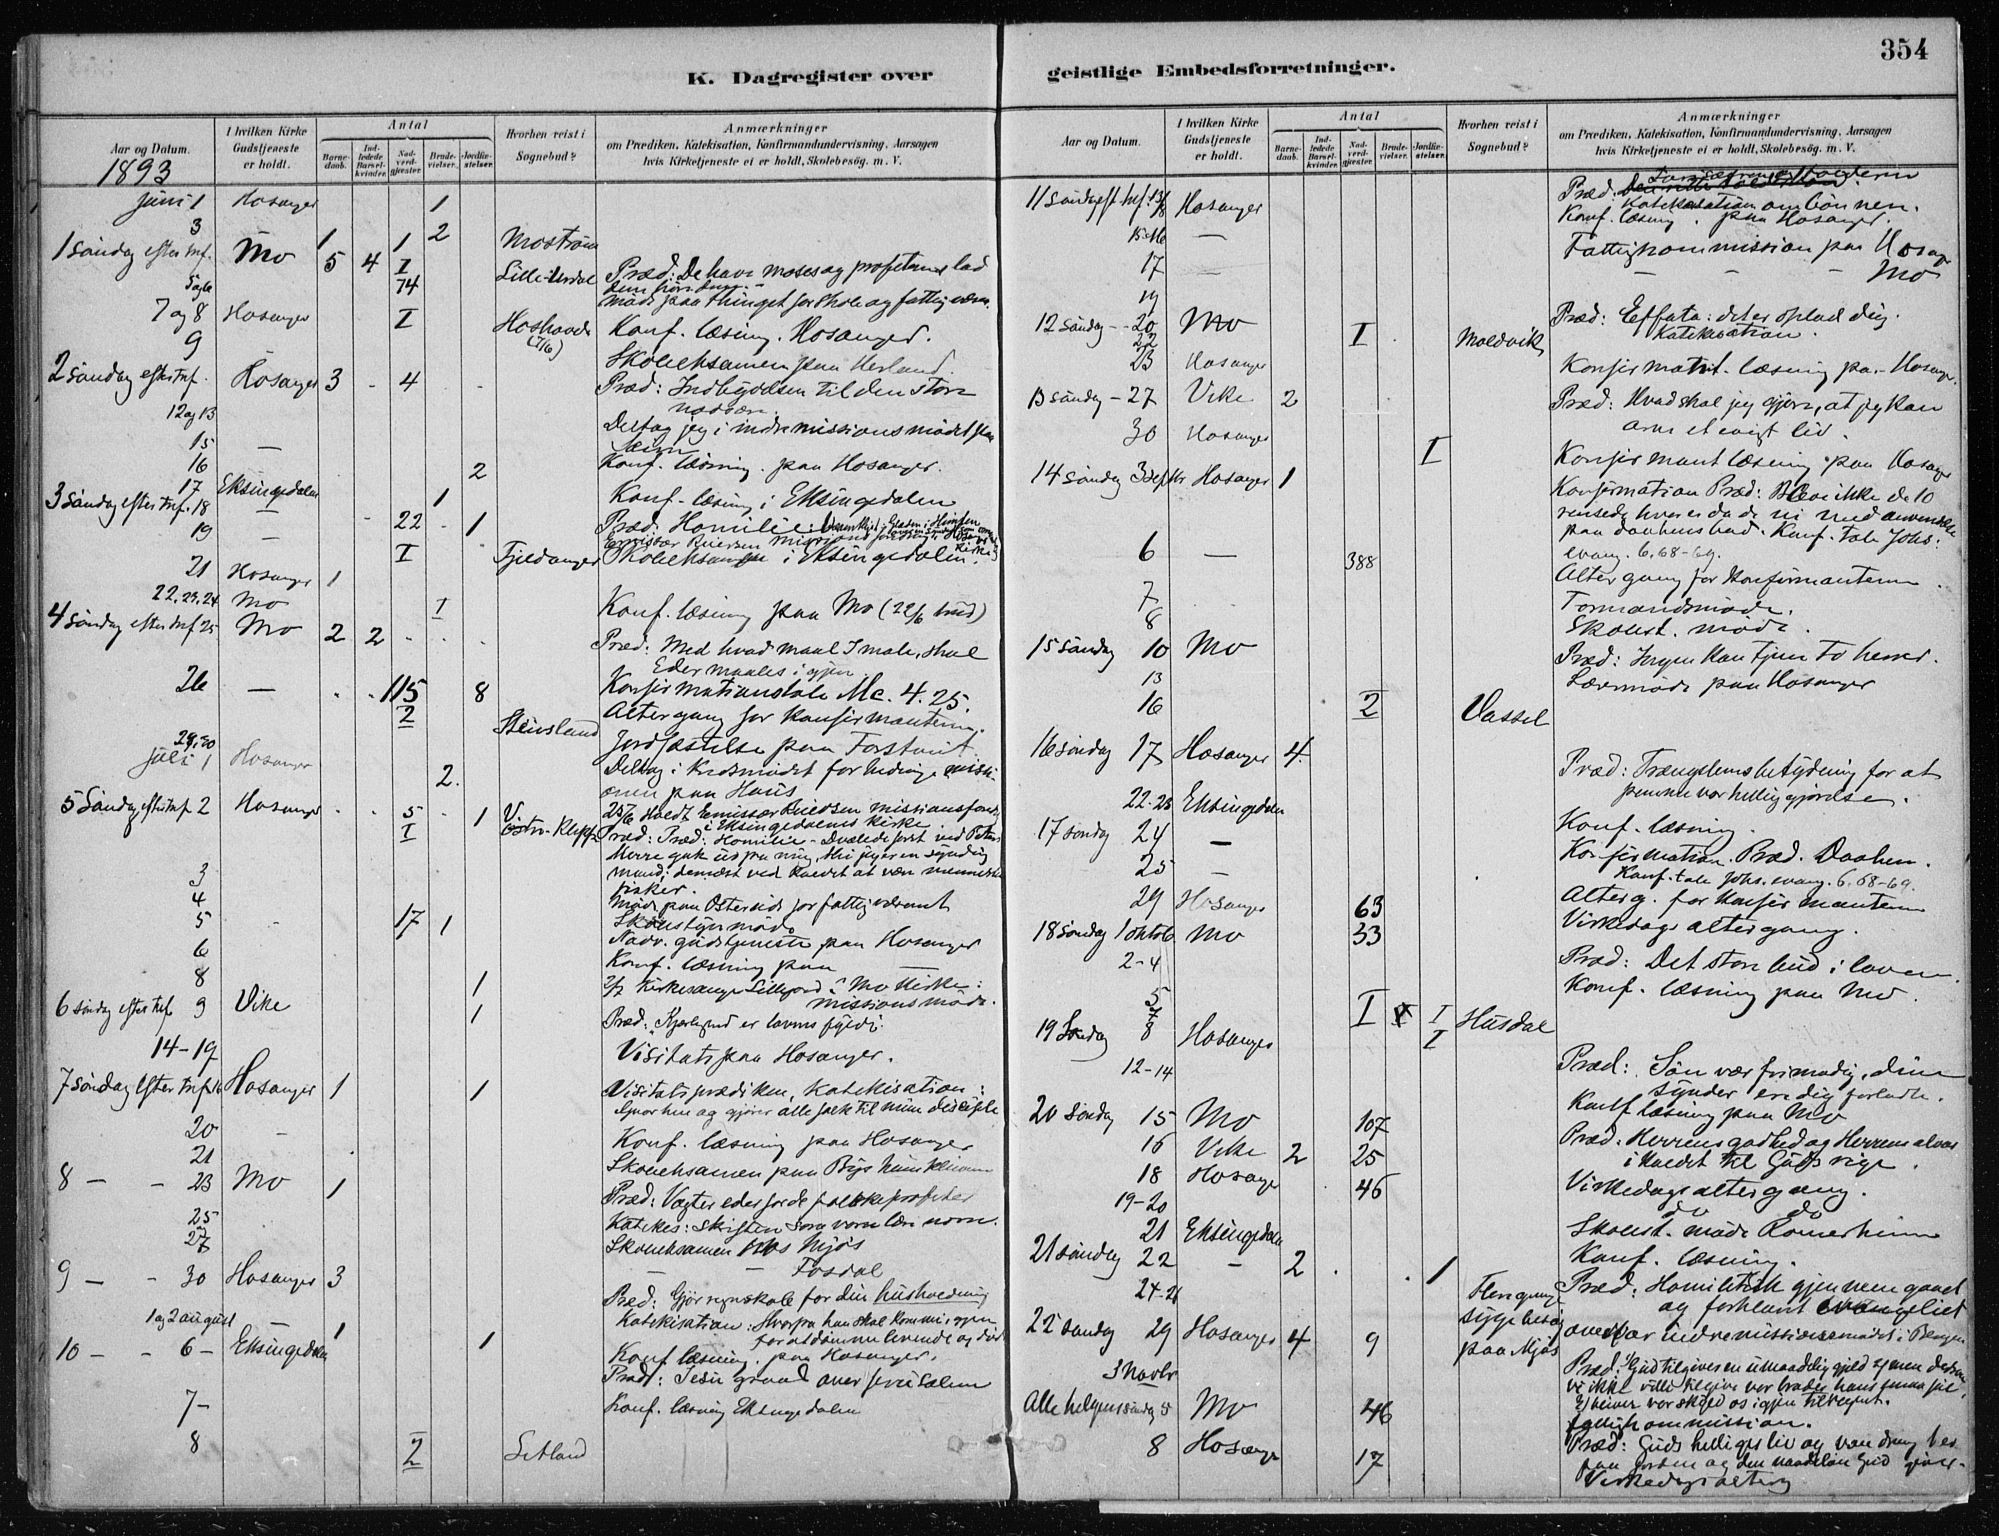 354
K. Dagregister over
geistlige Embedsforretninger.
Aar og Datum.
1893
I hvilken Kirke Gudstjeneste er holdt.
Antal
Barnedaab.
Indledede Barselkvinder.
Nadverdgjester.
Brudevielser.
Jordfæstelser.
Hvorhen reist i Sognebud?
Anmærkninger
om Prædiken, Katekisation, Konfirmandundervisning, Aarsagen
hvis Kirketjeneste ei er holdt, Skolebesøg. m. V.
Juni 1 Hosanger 1
3 2
1 søndag efter tref. Mo 1 5 4 1 I 74 Mostrøm
Præd: De have Moses og profeterne lad
dem høre dem.
5 og 6 møde paa thinget for skole og fattigvæsen
7 og 8 Hosanger I Konf. læsning. Hosanger.
9 Skoleeksamen paa Herland.
2 søndag efter tref. Hosanger 3 - 4 - Præd: Indbydelsen til den store
nadvere.
12 og 13 Deltog jeg i indremissionsmødet paa
15 —
16 2 Konf. læsning. paa Hosanger.
17 Eksingedalen 1 Konf. læsning i Eksingedalen
3 søndag efter tref. 18 — 22 1 Præd: Homilie:
19 — I Fjeldanger Skoleeksamen i Eksingedalen.
21 Hosanger 1
22, 23, 24 Mo I Konf. læsning paa Mo (22/6 bud)
4 søndag efter tref 25 Mo 2 2 Præd: Med hvad maal I male, skal
Eder maales igjen
Konfirmationstale Mc. 4. 25.
26 — 115 8 Altergang for konfirmanterne.
2 Steinsland Jordfæstelse paa
29, 30 Deltog i Kredsmødet for hedningemissi-
onen paa Haus
Juli 1 Hosanger 2
5 Søndag efter tref 2 Hosanger 5 1 25/6 Holdt Emissær missionsforedrag
i Eksingedalens Kirke
I Præd: Præd: Homilie - Dvælede først ved Peters
Herre gak ud fra mig, thi jeg er en syndig
mand; dernæst ved kaldet at være menneske
fisker.
3 møde paa Ostereide for fattigvæsenet
4 Skolestyrmøde
5 17 1 Nadv. gudstjeneste paa Hosanger
6 Konf. læsning paa —
8 1 2/7 Kirkesanger Lillefjord i Mo Kirke:
missionsmøde.
6 søndag efter tref 9 Vike 1 Præd: Kjærlighed er lovens fylde.
14-19 Visitats paa Hosanger.
7 søndag efter tref. 16 Hosanger 1 1 Visitatsprædiken, Katekisation:
Gaar hen og gjører alle folk til mine disciple
20 — Konf. læsning paa Hosanger
21 Skoleeksamen paa
8 — — 23 Mo 1 Præd: Vogter eder for de falske profeter
Katekes: Skriften som vor lære norm.
25 Skoleeksamen hos Mjøs
27 — — Fosdal
9 — - 30 Hosanger 3 Præd: Gjør regnskab for din husholdning
Katekisation: Hvorfra han skal komme igjen
for at dømme levende og døde
1 og 2 august 1 Konf læsning. paa Hosanger.
10 — - 6 — Eksingedalen 1 Præd: Jesu graad over Jerusalem
7 — Konf. læsning Eksingedalen
8 2 Setland
Aar og Datum.
I hvilken Kirke Gudstjeneste er holdt.
Antal
Barnedaab.
Indledede Barselkvinder.
Nadverdgjester.
Brudevielser.
Jordfæstelser.
Hvorhen reist i Sognebud?
Anmærkninger
om Prædiken, Katekisation, Konfirmandundervisning, Aarsagen
hvis Kirketjeneste ei er holdt, Skolebesøg. m. V.
11 søndag eft tref. 13/8 Hosanger Præd:
Katekisation om bønnen.
15-16 — Konf. læsning. paa Hosanger.
17 — Fattigkommission paa Hosanger
19 - - - Mo
12 søndag - - 20 Mo I Moldvik Præd: Effata: det er oplad dig.
Katekisation.
22
23 Hosanger Konfirmant. læsning paa Hosanger.
13 søndag - 27 Vike 2 Præd: Hvad skal jeg gjøre, at jeg kan
arve et evigt liv.
30 Hosanger I Konfirmantlæsning paa Hosanger
14 søndag 3 septbr Hosanger 1 Konfirmation Præd: Bleve ikke de 10
rensede hvor er da de ni med anvendelse
paa daabens bad. Konf. tale Johs:
evang. 6, 68-69.
6 — 388 Altergang for konfirmanterne.
7 Formandsmøde.
8 Skolest. møde.
15 søndag 10 Mo Præd: Ingen kan tjene to herrer.
13 Læremøde paa Hosanger
16 2 Vassel
16 søndag 17 Hosanger 4 Præd: Trængslens betydning for at
fremme vor helliggjørelse.
22-23 Eksingedalen Konf. læsning.
17 søndag 24 — Konfirmation. Præd. Daaben.
Konf. tale Johs. evang. 6. 68-69.
25 — Alterg. for konfirmanterne
29 Hosanger 63 Virkedags altergang.
18 søndag 1 oktob Mo 33 Præd: Det store bud i loven
2-4 Konf. læsning paa Mo.
5 I I Husdal
7
19 Søndag 8 Hosanger I Præd: Søn vær frimodig, dine
synder ere dig forladte.
12-14 Konf læsning paa Mo
20 søndag 15 Mo 107 Præd: Herrens godhed og Herrens alvor
i kaldet til Guds rige.
16 Vike 2 25 Virkedags altergang.
18 Hosanger 46 do do
19-20 Skolest. møde Romarheim
21 Eksingedalen Konf. læsning.
21 søndag 22 - 2 1 Præd: Homilitisk gjennemgaaet
og forklaret evangeliet
24-26 Flere gange sygebesøg paa Mjøs overvar indremissionsmødet i Bergen
22 søndag 29 Hosanger 4 9 Præd: 1) Gud tilgiver en umaadelig gjeld 2) men dersom
vi ikke ville tilgive vor broder hans
3) bliver vor skyld os igjen tilregnet.
3 Novbr fattigkommission.
Alle helgens søndag 5 Mo 46 Præd: Guds helliges liv og vandring her
paa jorden og den naadeløn Gud giver.
8 Hosanger 17 Virkedags alterg